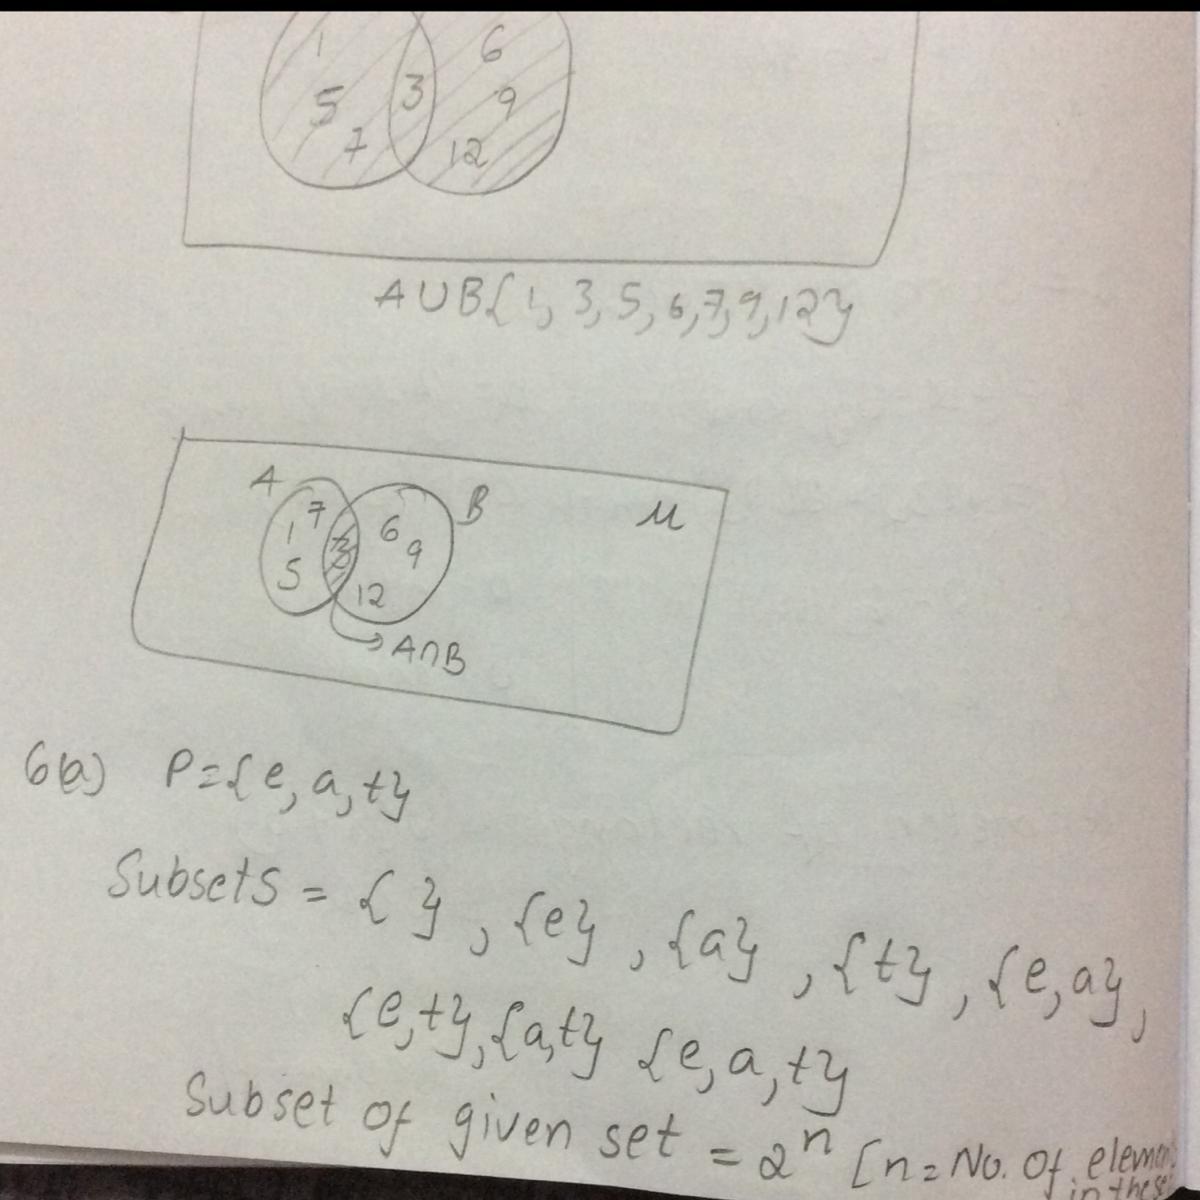 1
6
5
3
9
7
12
AUB{1, 3, 5, 6, 7, 9, 12}
A
B
μ
7
1
6
3
9
5
12
A∩B
6(a) P={e, a, t}
Subsets = { }, {e}, {a}, {t}, {e, a},
{e, t}, {a, t} {e, a, t}
Subset of given set = 2ⁿ [n = No. of elemen
in the se